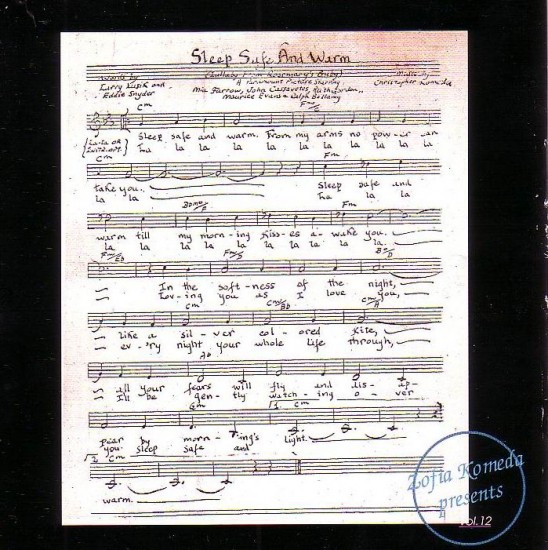 Sleep Safe And Warm
(Lullaby From Rosemary's Baby)
A Paramount Picture Starring
Mia Farrow, John Cassavetes, Ruth Gordon,
Maurice Evans & Ralph Bellamy
Words by
Larry Kusik and
Eddie Snyder
Music by
Christopher Komeda
Cm Fm/C
Sleep safe and warm. From my arms no pow-er can
la la la la la la la la la la
Cm Fm
take you. Sleep safe and
la la la la la
Fm
warm till my morn-ing kiss-es a-wake you.
la la la la la la la la la
In the soft-ness of the night,
Lov-ing you as I love you,
Cm
Like a sil-ver col-ored kite,
ev-'ry night your whole life through,
all your fears will fly and dis-ap-
I'll be gen-tly watch-ing o-ver
Gm 1. Cm
pear by morn-ing's light.
you. Sleep safe and
2. Cm
warm.
Zofia Komeda
presents
vol.12